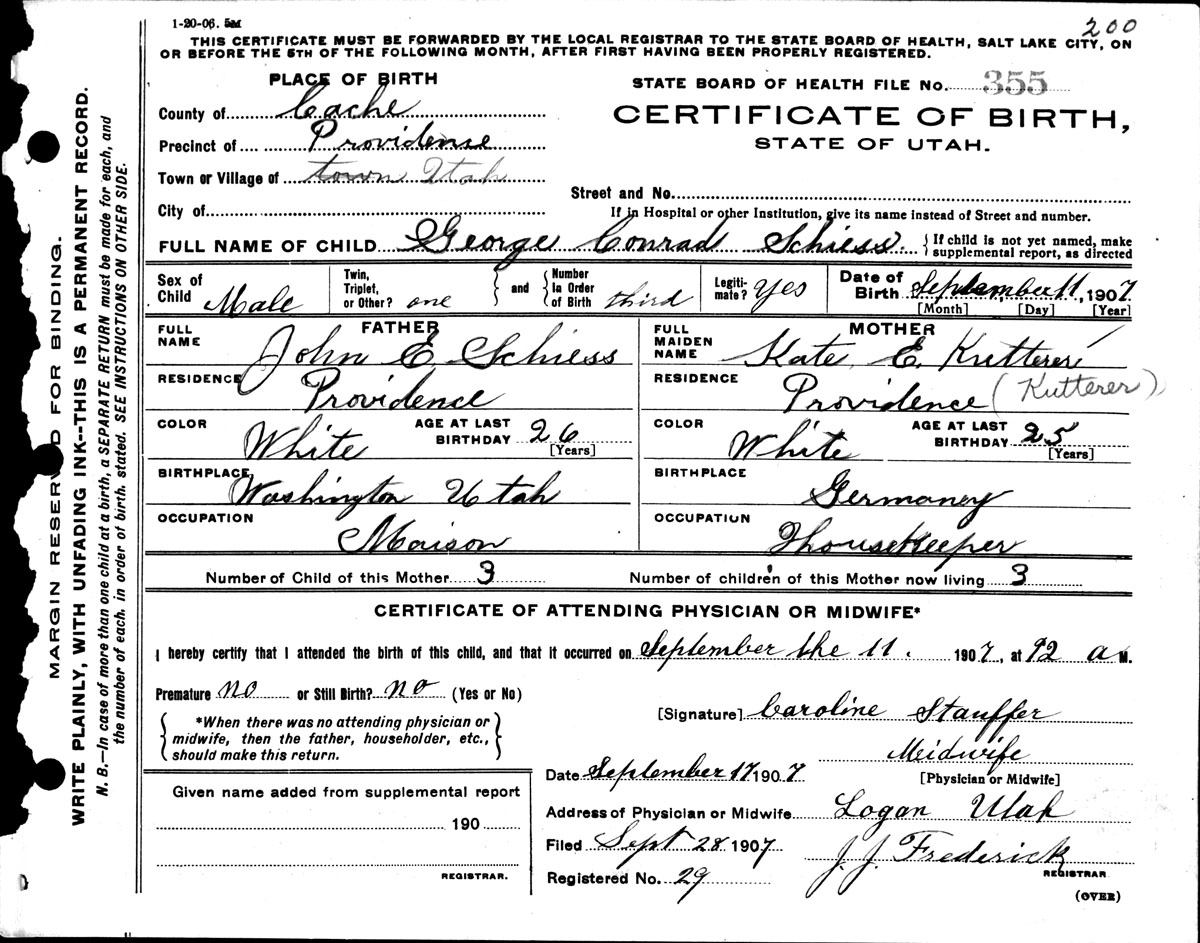 1-20-06. 5M
200
THIS CERTIFICATE MUST BE FORWARDED BY THE LOCAL REGISTRAR TO THE STATE BOARD OF HEALTH, SALT LAKE CITY, ON
OR BEFORE THE 5TH OF THE FOLLOWING MONTH, AFTER FIRST HAVING BEEN PROPERLY REGISTERED.
PLACE OF BIRTH
STATE BOARD OF HEALTH FILE No. 355
County of Cache
CERTIFICATE OF BIRTH,
Precinct of Providense
STATE OF UTAH.
Town or Village of town Utah
Street and No.
City of
If in Hospital or other Institution, give its name instead of Street and number.
FULL NAME OF CHILD George Conrad Schiess. {If child is not yet named, make
supplemental report, as directed
Sex of Child Male
Twin, Triplet, or Other? one } and { Number In Order of Birth third
Legiti-mate? Yes
Date of Birth September 11, 1907
[Month] [Day] [Year]
FATHER
FULL NAME John E. Schiess
RESIDENCE Providence
COLOR White AGE AT LAST BIRTHDAY 26
[Years]
BIRTHPLACE Washington Utah
OCCUPATION Maison
MOTHER
FULL MAIDEN NAME Kate E. Kutterer
RESIDENCE Providence (Kutterer)
COLOR White AGE AT LAST BIRTHDAY 25
[Years]
BIRTHPLACE Germaney
OCCUPATION Thousekeeper
Number of Child of this Mother 3 Number of children of this Mother now living 3
CERTIFICATE OF ATTENDING PHYSICIAN OR MIDWIFE*
I hereby certify that I attended the birth of this child, and that it occurred on September the 11. 1907, at 92 a M.
Premature no or Still Birth? no (Yes or No)
*When there was no attending physician or
midwife, then the father, householder, etc.,
should make this return.
[Signature] Caroline Stauffer
Meidwife
[Physician or Midwife]
Date September 17 1907
Given name added from supplemental report
190
REGISTRAR.
Address of Physician or Midwife Logan Utah
Filed Sept 28 1907 J. J. Frederick
REGISTRAR
Registered No. 29
(OVER)
MARGIN RESERVED FOR BINDING.
WRITE PLAINLY, WITH UNFADING INK--THIS IS A PERMANENT RECORD.
N. B.—In case of more than one child at a birth, a SEPARATE RETURN must be made for each, and
the number of each, in order of birth, stated. SEE INSTRUCTIONS ON OTHER SIDE.